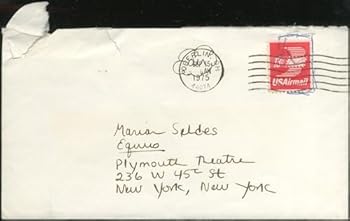 OBERLIN, OH
PM
1975
44074
USAirmail
Marian Seldes
Equus
Plymouth Theatre
236 W 45th St
New York, New York